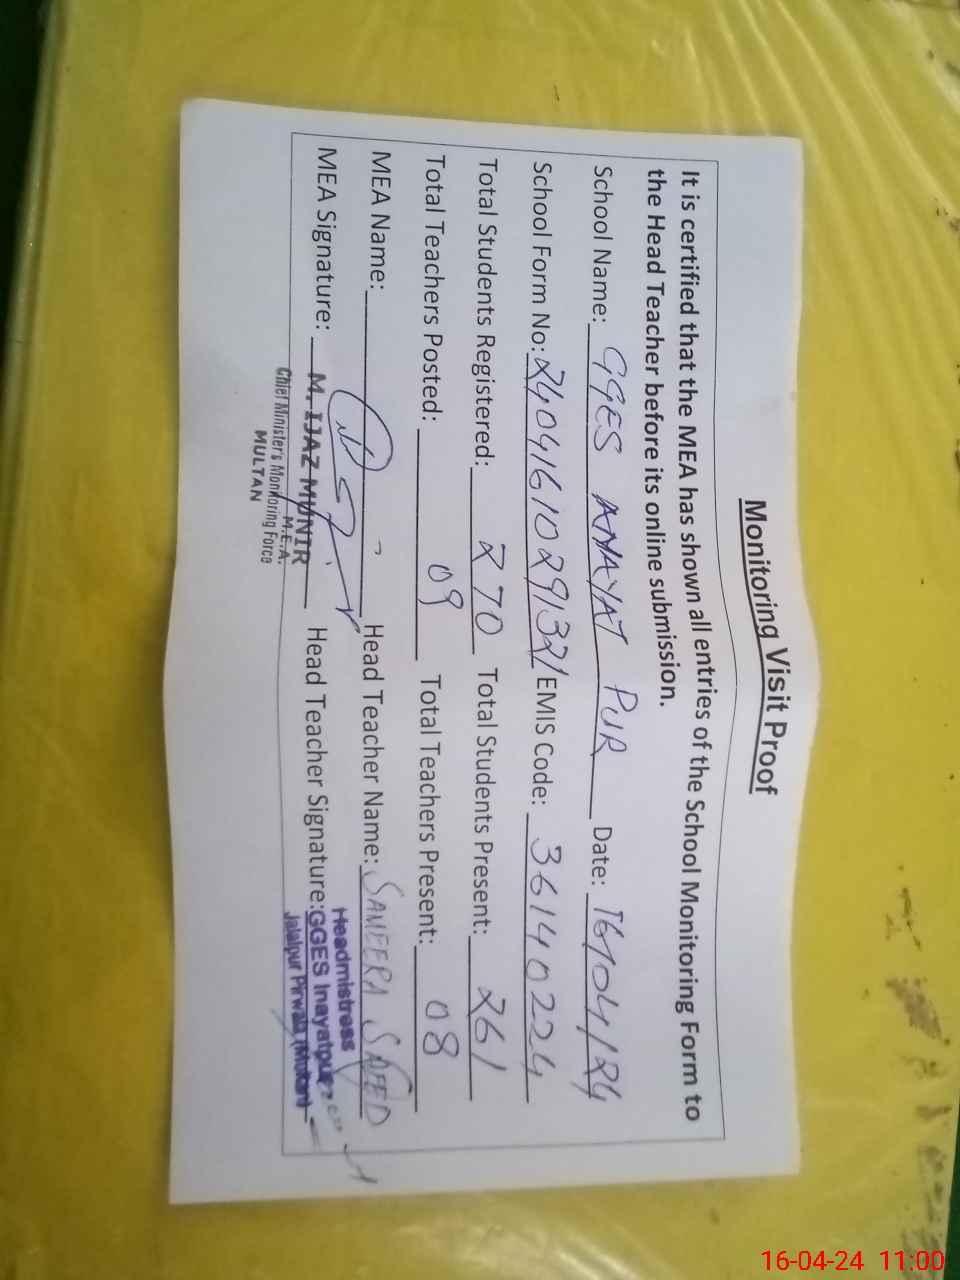 Monitoring Visit Proof
It is certified that the MEA has shown all entries of the School Monitoring Form to
the Head Teacher before its online submission.
School Name: GGES ANAYAT PUR Date: 16/04/24
School Form No: 24041610291321 EMIS Code: 36140224
Total Students Registered: 270 Total Students Present: 261
Total Teachers Posted: 09 Total Teachers Present: 08
MEA Name: Head Teacher Name: SAMEERA SAEED
MEA Signature: Head Teacher Signature:
M. IJAZ MUNIR
M.E.A.
Chief Minister's Monitoring Force
MULTAN
Headmistress
GGES Inayatpur
Jalalpur Pirwala (Multan)
16-04-24 11:00